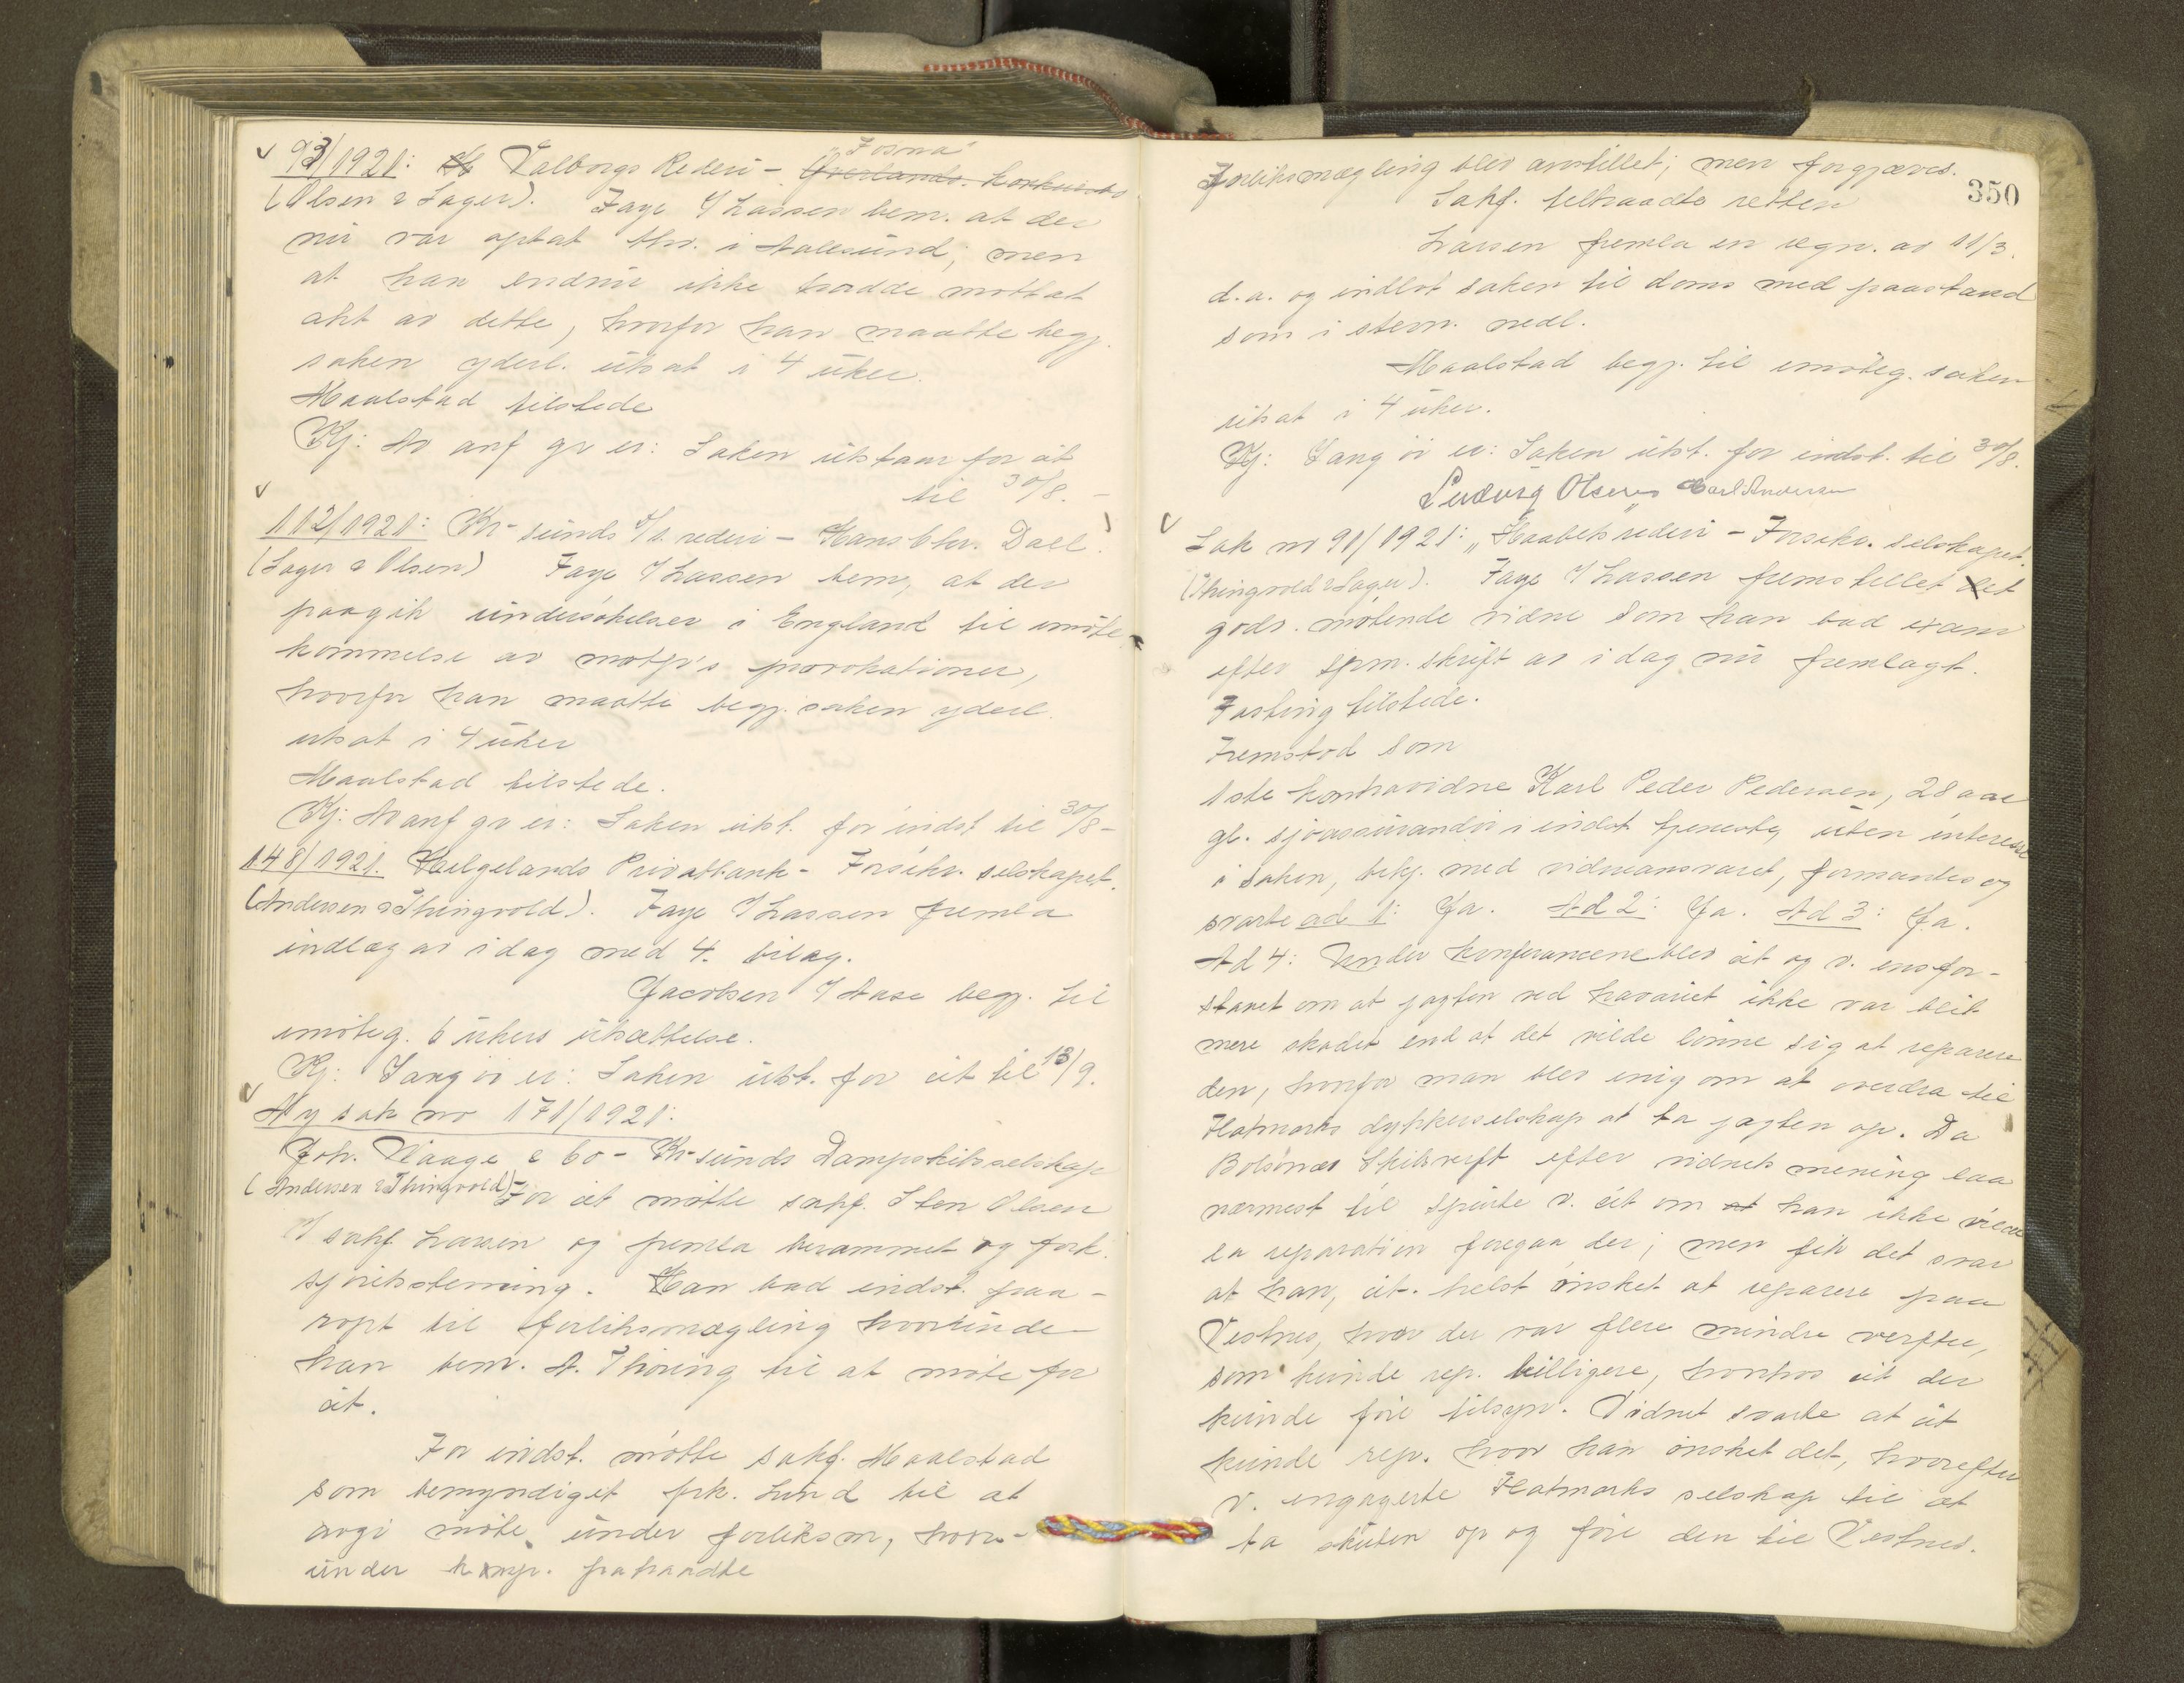 93/1921: Valborgs Rederi - Överlands. korkverks "Fosna"
(Olsen & Sager). Faye f/Lassen bem. at der
nu var optat thv. i Aalesund, men
at han endnu ikke hadde mottat
akt av dette, hvorfor han maatte begj.
saken yderl. utsat i 4 uker.
Maalstad tilstede
Kj: Av anf gr er: Saken utstaar for cit
til 30/8. -
112/1921: Kr-sunds f/s. rederi - Hans Chr. Dall.
(Sager & Olsen) Faye f/Lassen bem, at der
paagik undersökelser i England til imöte
kommelse av motp's provokationer,
hvorfor han maatte begj. saken yderl.
utsat i 4 uker
Maalstad tilstede.
Kj: Av anf gr er: Saken utst. for indst til 30/8 -
148/1921. Helgelands Privatbank - Forsikr. selskapet.
(Andersen & Thingvold). Faye f/Lassen fremla
indlæg av idag med 4. bilag.
Jacobsen f/Aase begj. til
imöteg. 6 ukers utsættelse.
Kj: Ifang ö er: Saken utst. for cit til 13/9.
Ny sak no 171/1921:
Joh. Vaage & Co - Kr-sunds Dampskibsselskap
(Andersen & Thingvold) - For cit mötte sakf. Sten Olsen
f/sakf Larsen og fremla berammet og fork.
sjöretsstevning. Han bad indst. paa-
ropt til forliksmægling hvorunde
han bem. A. Thöring til at möte for
cit.
For indst. mötte sakf. Maalstad
som bemyndiget frk. Lund til at
avgi möte under forliksm, hvor-
under komp. frahaadte
Forliksmægling blev anstillet; men forgjæves. 350
Sakf. tiltraadte retten
Larsen fremla en regn. av 11/3.
d.a. og indlot saken til doms med paastand
som i stevn. nedl.
Maalstad begj. til imöteg. saken
utsat i 4 uker.
Kj: Ifang ö er: Saken utst. for indst. til 30/8.
Ludvig Olsen Carl Andersen
Sak nr 91/1921: "Haabets rederi - Forsikr. selskapet.
(Thingvold & Sager). Faye f/Lassen fremstillet et
godv. mötende vidne som han bad exam
efter spm. skrift av i dag nu fremlagt.
Fasting tilstede.
Fremstod som
1ste kontravidne Karl Peder Pedersen, 28 aar
gl. sjöassurandör i indst tjeneste, uten interesse
i saken, bekj. med vidneansvaret, formantes og
svarte ad 1: Ja. Ad 2: Ja. Ad 3: Ja.
Ad 4: Under konferancene blev cit og v. ensfor-
staaet om at jagten ved havariet ikke var blit
mere skadet end at det vilde lönne sig at reparere
den, hvorfor man blev enig om at overdra til
Flatmarks dykkerselskap at ta jagten op. Da
Bolsönes Skibsverft efter vidnets mening laa
nærmest til spurte v. cit om at han ikke vilde
la reparation foregaa der; men fik det svar
at han, cit. helst önsket at reparere paa
Vestnes, hvor der var flere mindre verfter,
som kunde rep. billigere, hvorhos cit der
kunde före tilsyn. Vidnet svarte at cit
kunde rep. hvor han önsket det, hvorefter
v. engagerte Flatmarks selskap til at
ta skuten op og före den til Vestnes.